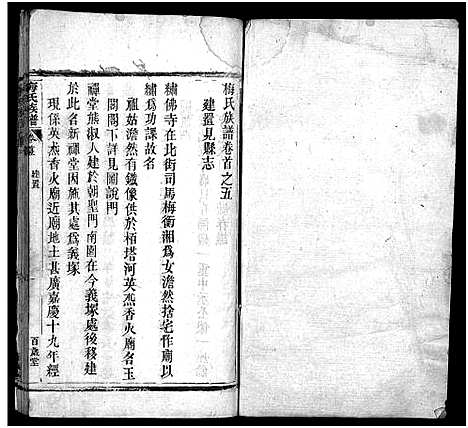 梅氏族譜卷首之五
建置見縣志
繡佛寺在北街司馬梅衡湘為女澹然捨宅作廟以
繡為功課故名
禪姑澹然有鐵像供於栢塔河英烝香火廟名玉
閣閣下詳見圖說門
禪堂族叔人建於朝聖門南園在今義塚處後移建
於此名新禪堂因施其處為義塚
現係英烝香火廟近廟地土甚廣嘉慶十九年經
梅氏族譜
卷首
建置
百歲堂